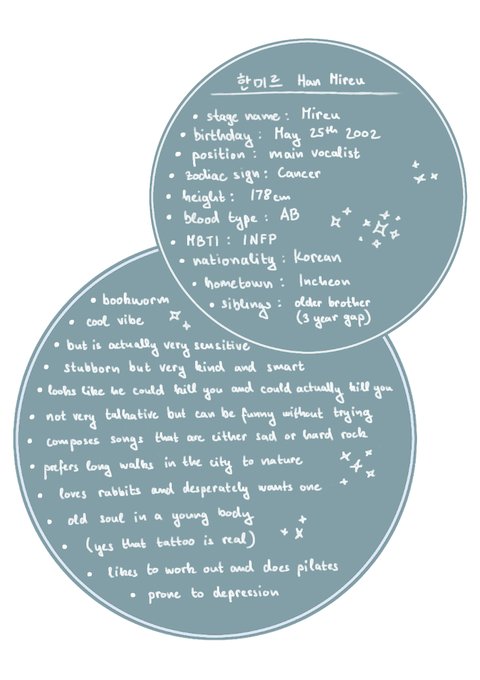 한미르 Han Mireu
• stage name : Mireu
• birthday : May 25th 2002
• position : main vocalist
• zodiac sign : Cancer
• height : 178cm
• blood type : AB
• MBTI : INFP
• nationality : Korean
• hometown : Incheon
• siblings : older brother
(3 year gap)
• bookworm
• cool vibe
• but is actually very sensitive
• stubborn but very kind and smart
• looks like he could kill you and could actually kill you
• not very talkative but can be funny without trying
• composes songs that are either sad or hard rock
• prefers long walks in the city to nature
• loves rabbits and desperately wants one
• old soul in a young body
• (yes that tattoo is real)
• likes to work out and does pilates
• prone to depression